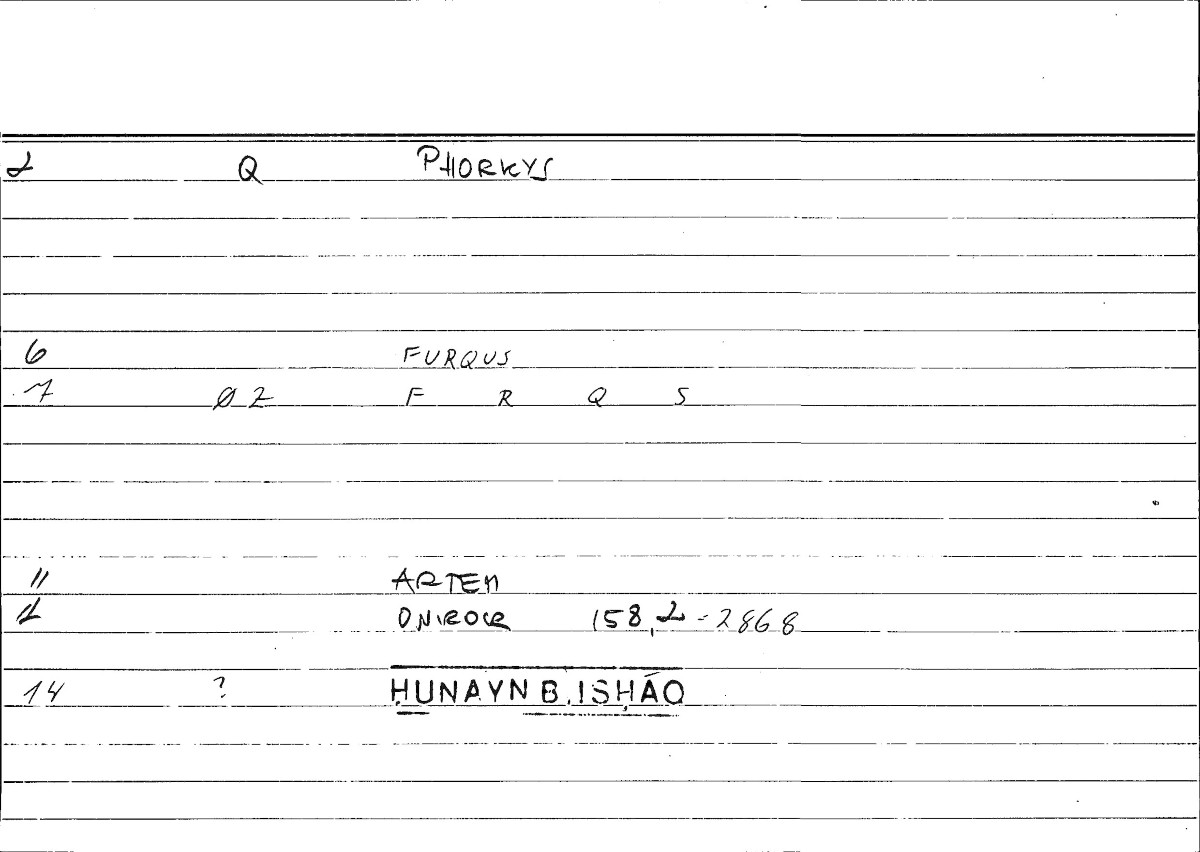 2 Q PHORKYS
6 FURQUS
7 Ø2 F R Q S
11 ARTEM
12 ONIROCR 158,2-2868
14 ? ḤUNAYN B. ISḤĀQ